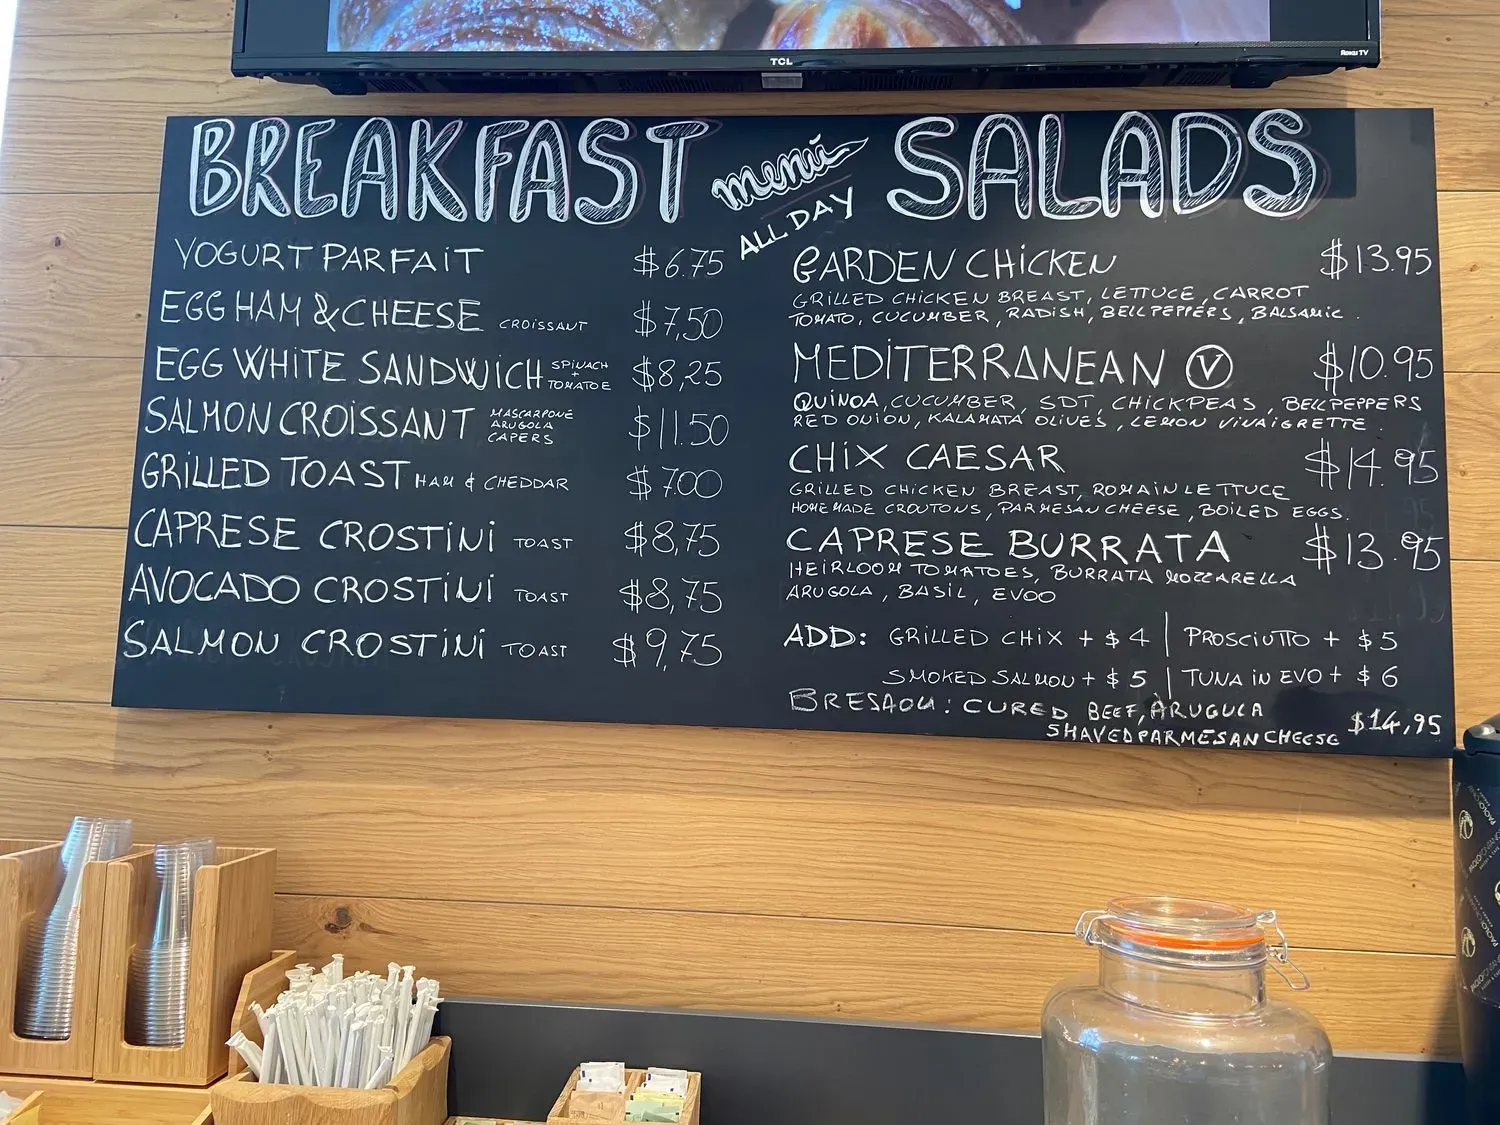 TCL
Roku TV
BREAKFAST menù SALADS
ALL DAY
YOGURT PARFAIT $6.75
EGG HAM & CHEESE CROISSANT $7,50
EGG WHITE SANDWICH SPINACH + TOMATOE $8,25
SALMON CROISSANT MASCARPONE ARUGOLA CAPERS $11.50
GRILLED TOAST HAM & CHEDDAR $7.00
CAPRESE CROSTINI TOAST $8,75
AVOCADO CROSTINI TOAST $8,75
SALMON CROSTINI TOAST $9,75
GARDEN CHICKEN $13.95
GRILLED CHICKEN BREAST, LETTUCE, CARROT
TOMATO, CUCUMBER, RADISH, BELLPEPPERS, BALSAMIC.
MEDITERRANEAN V $10.95
QUINOA, CUCUMBER, SDT, CHICKPEAS, BELLPEPPERS
RED ONION, KALAMATA OLIVES, LEMON VINAIGRETTE.
CHIX CAESAR $14.95
GRILLED CHICKEN BREAST, ROMAIN LETTUCE
HOMEMADE CROUTONS, PARMESAN CHEESE, BOILED EGGS.
CAPRESE BURRATA $13.95
HEIRLOOM TOMATOES, BURRATA MOZZARELLA
ARUGOLA, BASIL, EVOO
ADD: GRILLED CHIX + $4 | PROSCIUTTO + $5
SMOKED SALMON + $5 | TUNA IN EVO + $6
BRESAOLA: CURED BEEF, ARUGULA
SHAVED PARMESAN CHEESE $14,95